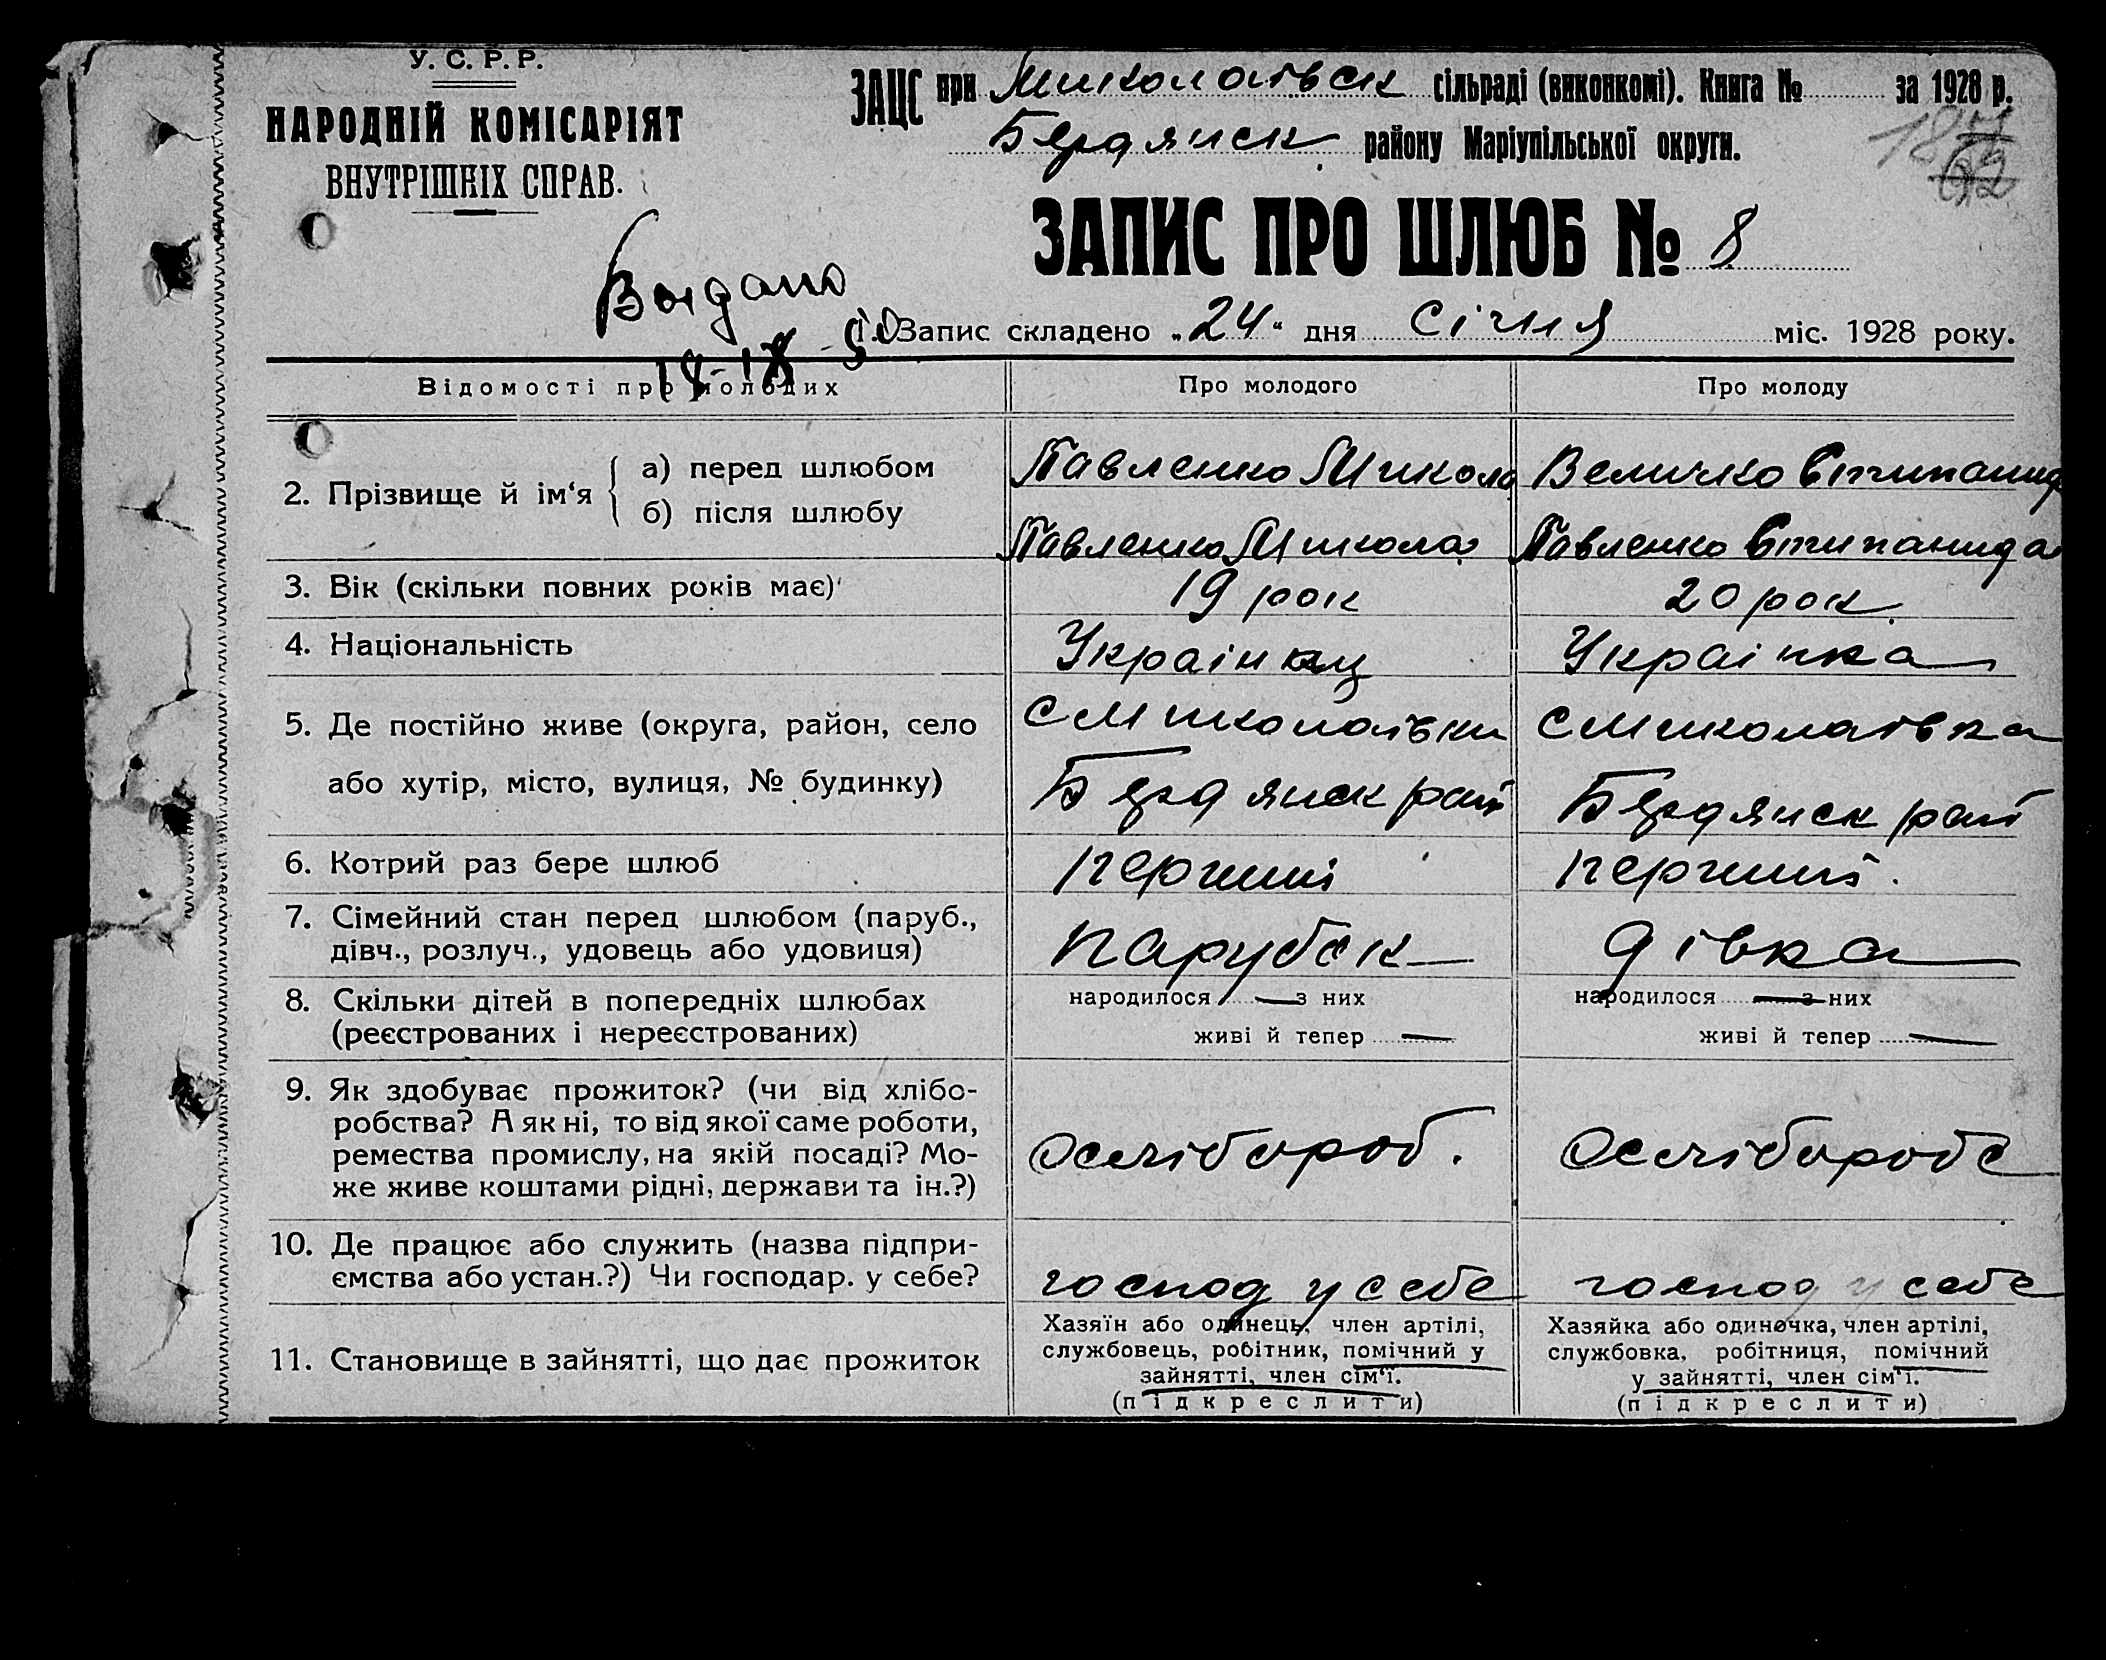 У. С. Р. Р.
НАРОДНІЙ КОМІСАРІЯТ
ВНУТРІШНІХ СПРАВ.
ЗАЦС при Миколаівск сільраді (виконкомі). Книга № за 1928 р.
Бердянск району Маріупільської округи.
187
62
ЗАПИС ПРО ШЛЮБ № 8
1. Запис складено „24“ дня Січня міс. 1928 року.
Відомості про молодих
Про молодого
Про молоду
2. Прізвище й ім‘я
а) перед шлюбом
Павленко Микола
Величко Стипанида
б) після шлюбу
Павленко Микола
Павленко Стипанида
3. Вік (скільки повних років має)
19 рок
20 рок
4. Національність
Украінец
Украінка
5. Де постійно живе (округа, район, село
або хутір, місто, вулиця, № будинку)
с Миколаівки
Бердянск рай
с Миколаівка
Бердянск рай
6. Котрий раз бере шлюб
перший
перший
7. Сімейний стан перед шлюбом (паруб.,
дівч., розлуч., удовець або удовиця)
парубок
дівка
8. Скільки дітей в попередніх шлюбах
(реєстрованих і нереєстрованих)
народилося — з них
живі й тепер —
народилося — з них
живі й тепер —
9. Як здобуває прожиток? (чи від хлібо-
робства? А як ні, то від якої саме роботи,
ремества промислу, на якій посаді? Мо-
же живе коштами рідні, держави та ін.?)
10. Де працює або служить (назва підпри-
ємства або устан.?) Чи господар. у себе?
господ у себе
господ у себе
11. Становище в зайнятті, що дає прожиток
Хазяїн або одинець, член артілі,
службовець, робітник, помічний у
зайнятті, член сім‘ї.
(підкреслити)
Хазяйка або одиночка, член артілі,
службовка, робітниця, помічний
у зайнятті, член сім‘ї.
(підкреслити)